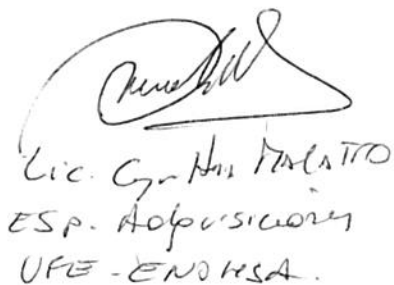 Lic. Cynthia MALATTO
ESP. Adquisiciones
UFE - ENOHSA.